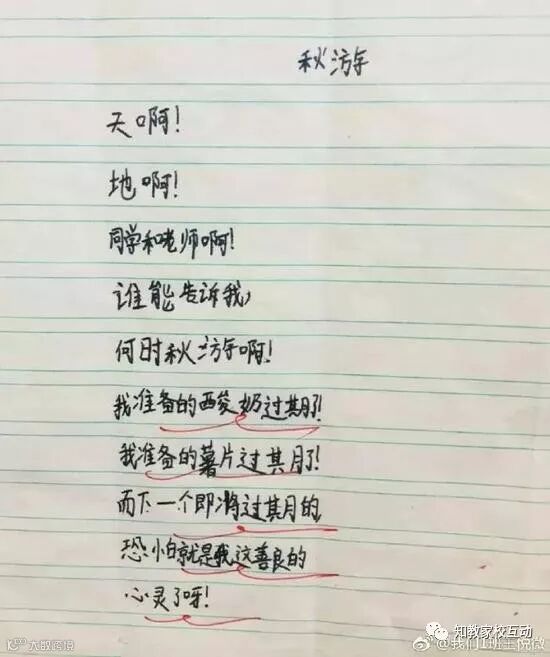 秋游
天啊!
地啊!
同学和老师啊!
谁能告诉我,
何时秋游啊!
我准备的酸奶过期了!
我准备的薯片过期了!
而下一个即将过期的
恐怕就是我这善良的
心灵了呀!
知教家校互动
大数跨境
@我们1班王悦微